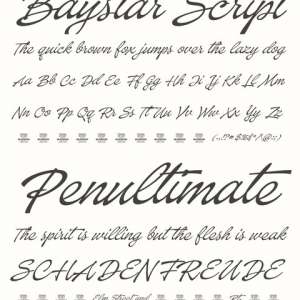 Baystar Script
The quick brown fox jumps over the lazy dog
Aa Bb Cc Dd Ee Ff Gg Hh Ii Jj Kk Ll Mm
Nn Oo Pp Qq Rr Ss Tt Uu Vv Ww Xx Yy Zz
Penultimate
The spirit is willing but the flesh is weak
SCHADENFREUDE
Elm Street and